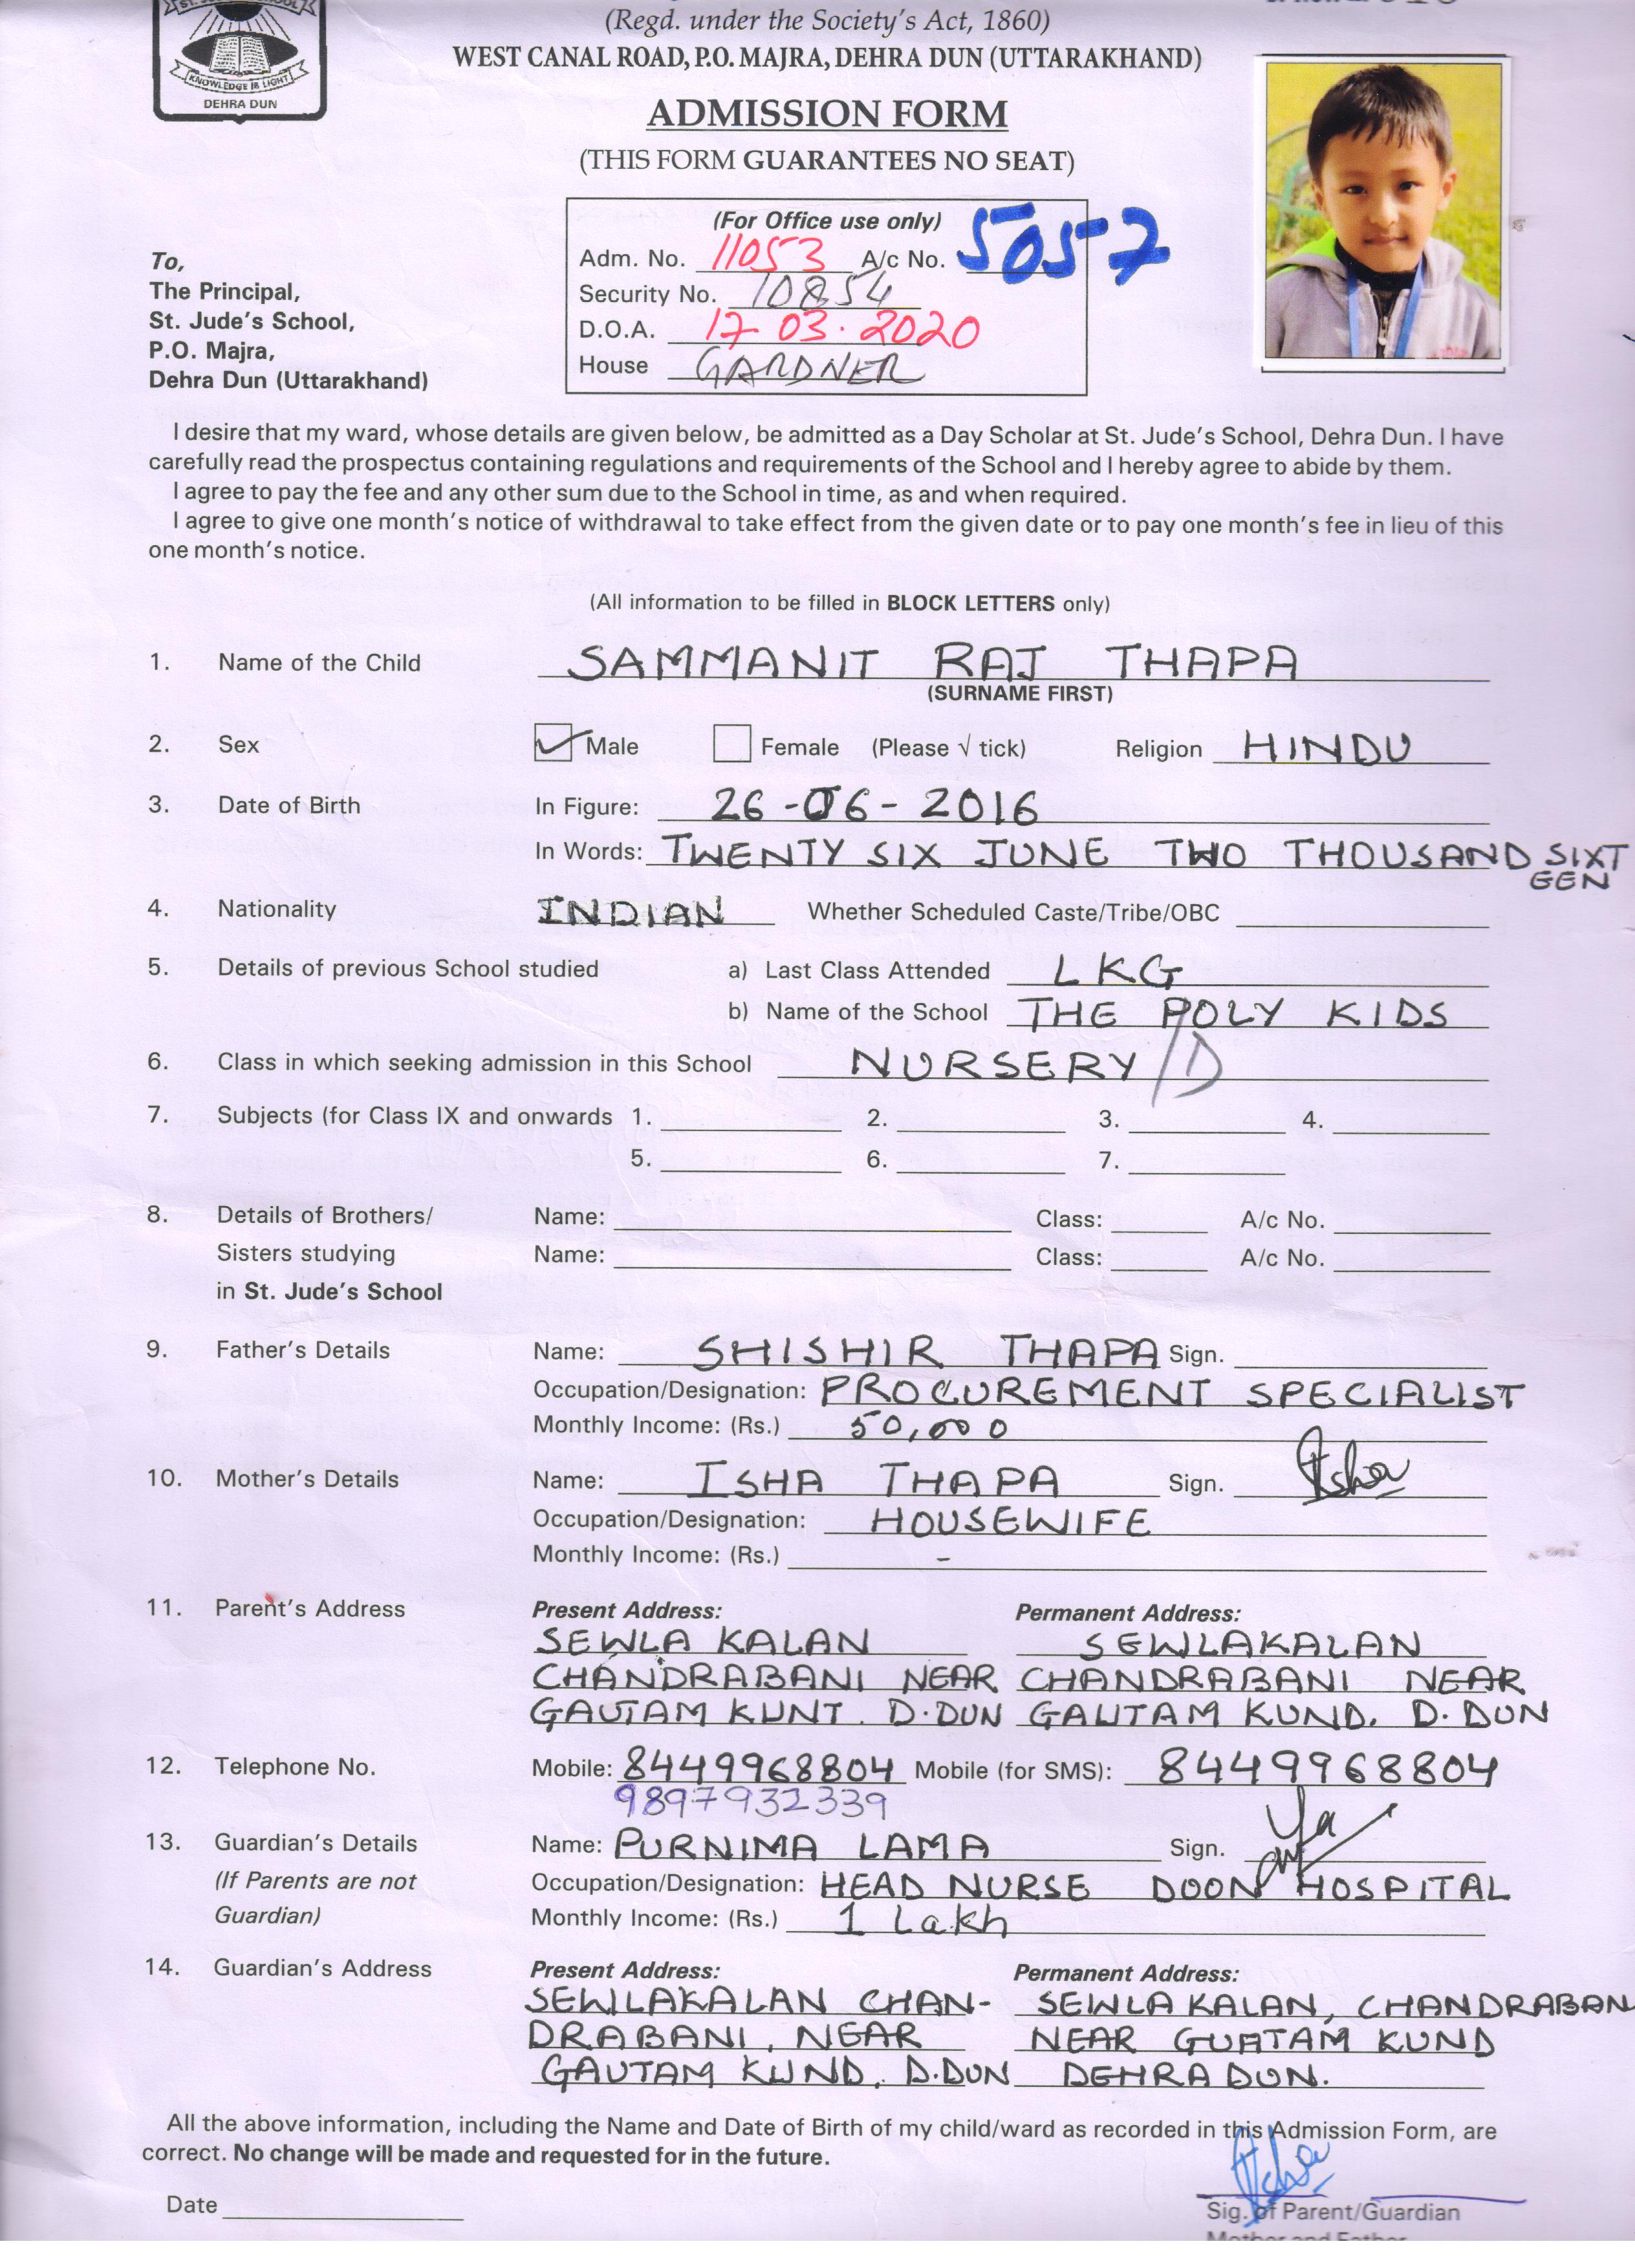 KNOWLEDGE IS LIGHT
DEHRA DUN
(Regd. under the Society's Act, 1860)
WEST CANAL ROAD, P.O. MAJRA, DEHRA DUN (UTTARAKHAND)
ADMISSION FORM
(THIS FORM GUARANTEES NO SEAT)
(For Office use only)
Adm. No. 11053 A/c No. 5057
Security No. 10854
D.O.A. 17-03-2020
House GARDNER
To,
The Principal,
St. Jude's School,
P.O. Majra,
Dehra Dun (Uttarakhand)
I desire that my ward, whose details are given below, be admitted as a Day Scholar at St. Jude's School, Dehra Dun. I have
carefully read the prospectus containing regulations and requirements of the School and I hereby agree to abide by them.
I agree to pay the fee and any other sum due to the School in time, as and when required.
I agree to give one month's notice of withdrawal to take effect from the given date or to pay one month's fee in lieu of this
one month's notice.
(All information to be filled in BLOCK LETTERS only)
1. Name of the Child SAMMANIT RAJ THAPA
(SURNAME FIRST)
2. Sex Male Female (Please √ tick) Religion HINDU
3. Date of Birth In Figure: 26-06-2016
In Words: TWENTY SIX JUNE TWO THOUSAND SIXT
EEN
4. Nationality INDIAN Whether Scheduled Caste/Tribe/OBC
5. Details of previous School studied a) Last Class Attended LKG
b) Name of the School THE POLY KIDS
6. Class in which seeking admission in this School NURSERY/D
7. Subjects (for Class IX and onwards 1. 2. 3. 4.
5. 6. 7.
8. Details of Brothers/ Name: Class: A/c No.
Sisters studying Name: Class: A/c No.
in St. Jude's School
9. Father's Details Name: SHISHIR THAPA Sign.
Occupation/Designation: PROCUREMENT SPECIALIST
Monthly Income: (Rs.) 50,000
10. Mother's Details Name: ISHA THAPA Sign. Isha
Occupation/Designation: HOUSEWIFE
Monthly Income: (Rs.) -
11. Parent's Address Present Address: Permanent Address:
SEWLA KALAN SEWLAKALAN
CHANDRABANI NEAR CHANDRABANI NEAR
GAUTAM KUNT. D.DUN GAUTAM KUND. D.DUN
12. Telephone No. Mobile: 8449968804 Mobile (for SMS): 8449968804
9897932339
13. Guardian's Details Name: PURNIMA LAMA Sign.
(If Parents are not Occupation/Designation: HEAD NURSE DOON HOSPITAL
Guardian) Monthly Income: (Rs.) 1 Lakh
14. Guardian's Address Present Address: Permanent Address:
SEWLAKALAN CHAN- SEWLA KALAN, CHANDRABAN
DRABANI, NEAR NEAR GUATAM KUND
GAUTAM KUND. D.DUN DEHRA DUN.
All the above information, including the Name and Date of Birth of my child/ward as recorded in this Admission Form, are
correct. No change will be made and requested for in the future.
Isha
Date Sig. of Parent/Guardian
Mother and Father